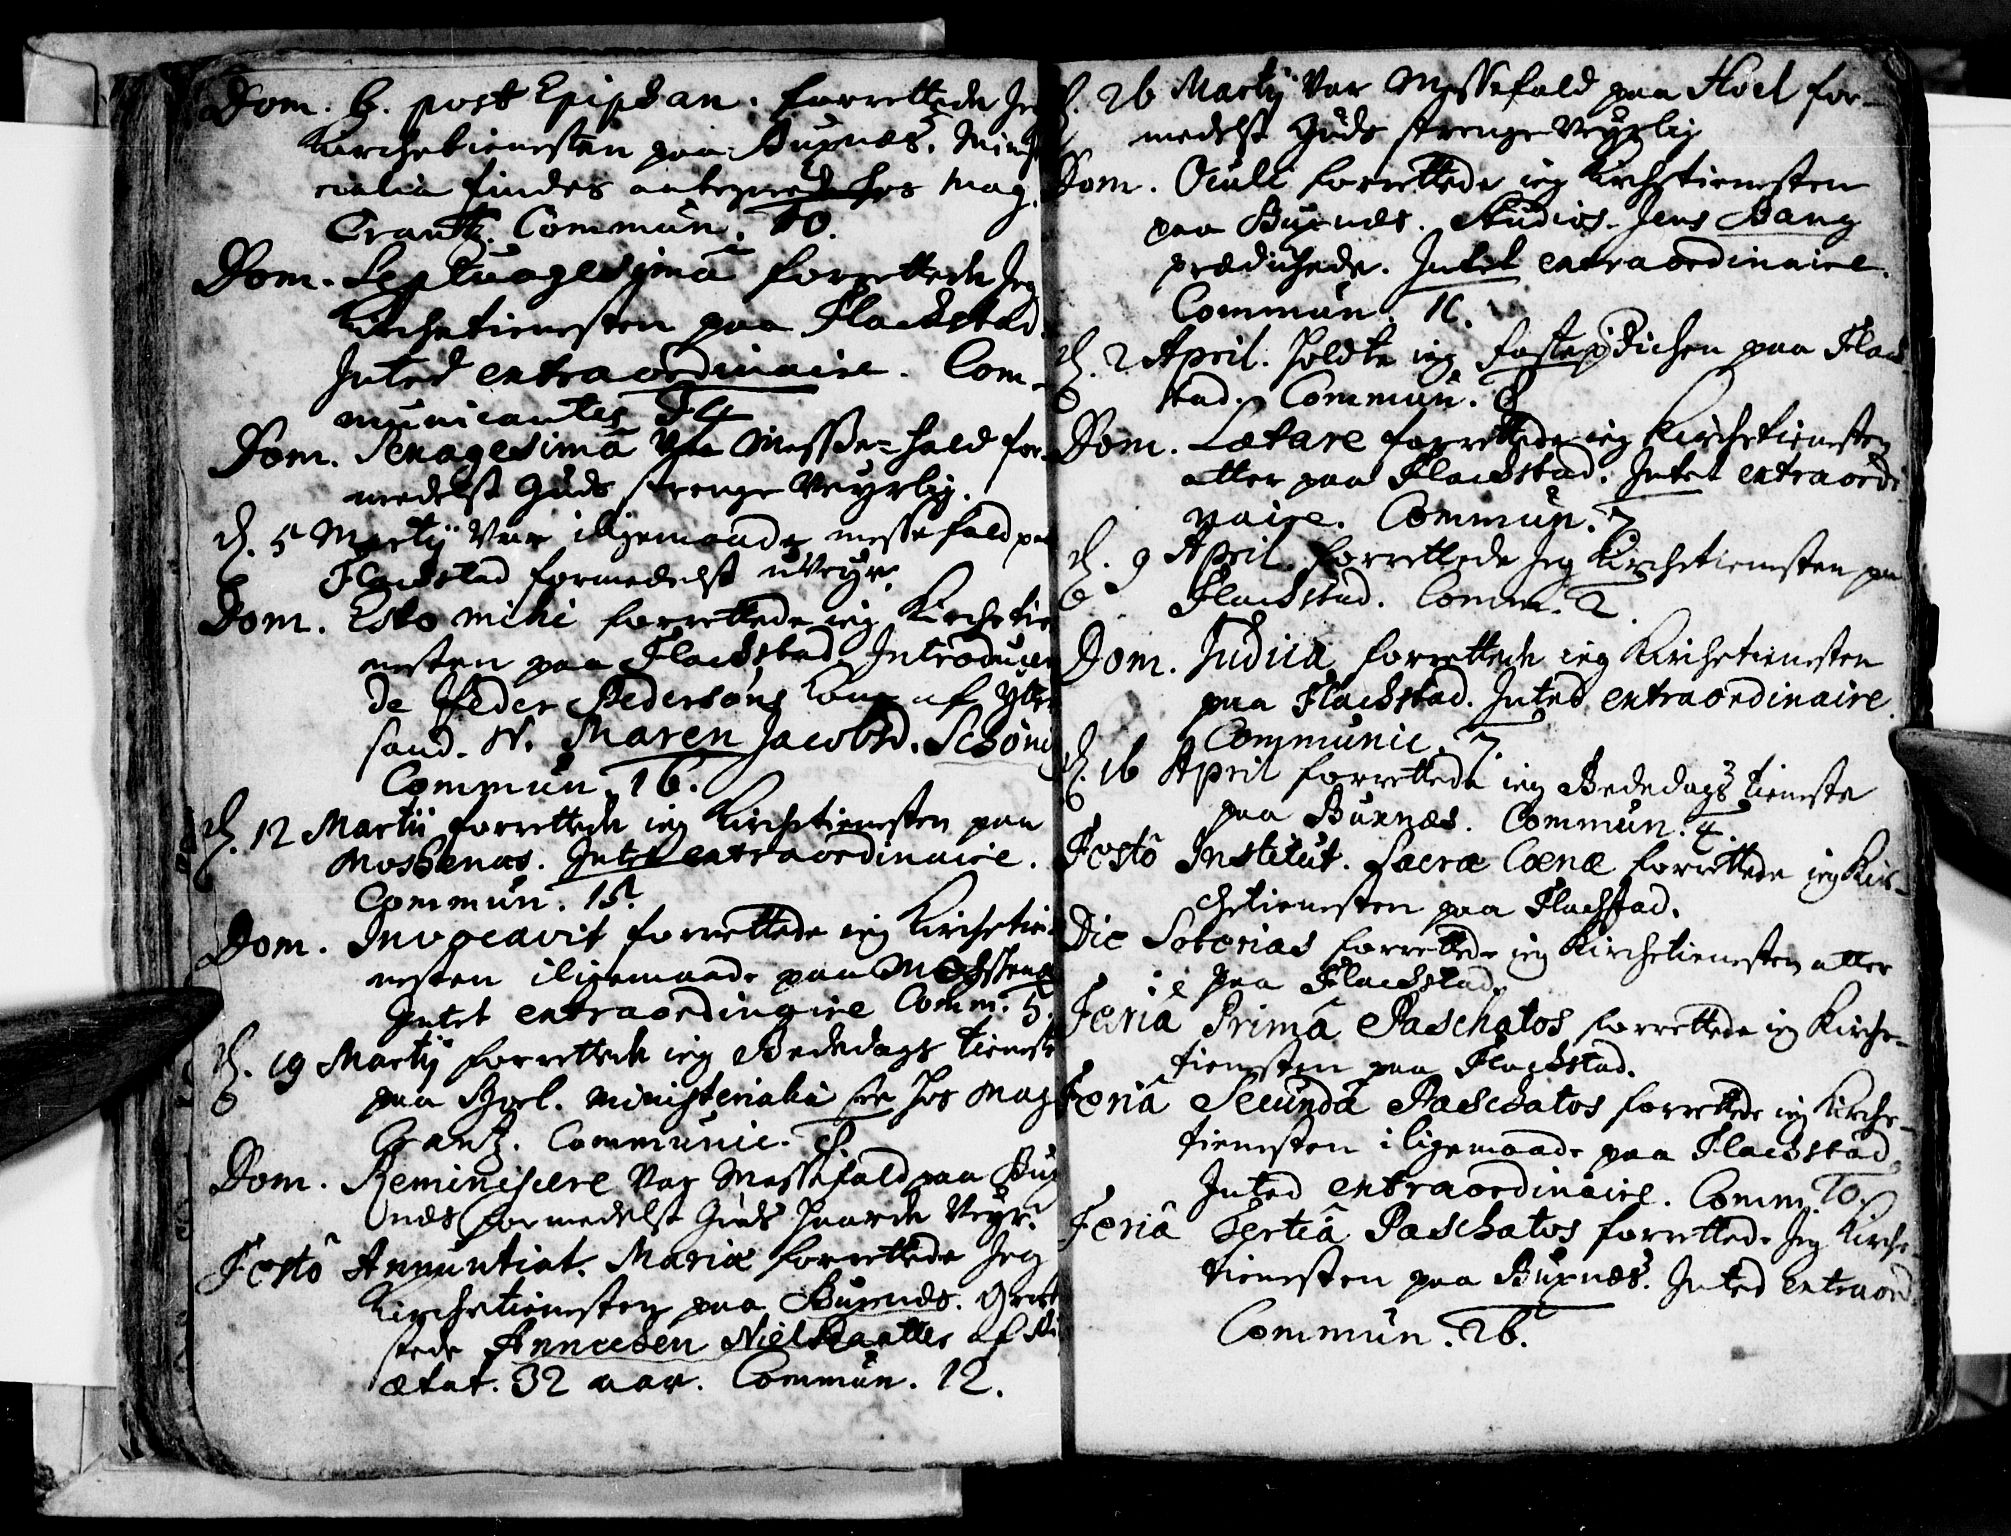 Dom. 6. post Epiphan. forrettede Jeg
Kirchetienesten paa Buxnæs. Minist
rialia findes antegnede hos Mag.
Crantz. Commun. 10.
Dom. Septuagesimâ forrettede Jeg
Kirchetienesten paa Flachstad.
Inted extraordinaire. Com-
municantes 14
Dom. Sexagesimâ var Messe=fald for-
medelst Guds strenge Veyrlig.
d. 5 Martij var iligemaade messefald paa
Flachstad formedelst uveyr.
Dom. Esto mihi forrettede ieg Kirchetie
nesten paa Flachstad. Introducer
de Peder Pedersøns Kone af Ytter
sand. N. Maren Jacobsd. Schøni
Commun. 16.
d. 12 Martii forrettede ieg Kirchetienesten paa
Moschenæs. Intet extraordinaire.
Commun. 15.
Dom. Invocavit forrettede ieg Kirchetie-
nesten iligemaade paa Moschenæs
Intet extraordinaire Comm. 5.
d. 19 Martij forrettede ieg Bededags tieneste
paa Hoel. ministerialia see hos Mag
Crantz. Communic. 8.
Dom. Reminiscere var Messefald paa Bux
næs formedelst Guds haarde Veyr.
Festô Annuntiat. Mariæ forrettede Jeg
Kirchetienesten paa Buxnæs. Graf
stede Annichen Niels af
ætat. 32 aar. Commun. 12.
d. 26 Martij var Messefald paa Hoel for-
medelst Guds strenge Veyrlig
Dom. Oculi forrettede ieg Kirchetienesten
paa Buxnæs. Studios. Jens Bang
prædichede. Intet extraordinaire.
Commun. 11.
d. 2 April. holdte ieg fasteprædichen paa Flach
stad. Commun. 8
Dom. Lætare forrettede ieg Kirchetienesten
atter paa Flachstad. Intet extraordi
naire. Commun. 7
d. 9 April forrettede Jeg Kirchetienesten paa
Flachstad. Comm. 2.
Dom. Judica forrettede ieg Kirchetienesten
paa Flachstad. Inted extraordinaire.
Communic. 7.
d. 16 April forrettede ieg Bededags tieneste
paa Buxnæs. Commun. 4.
Festô Institut. Sacræ Cœnæ forrettede ieg Kir-
chetienesten paa Flachstad.
Die Soterias forrettede ieg Kirchetienesten atter
paa Flachstad.
Feriâ Primâ Paschatos forrettede ieg Kirche-
tienesten paa Flachstad.
Feriâ Secundâ Paschatos forrettede ieg Kirche-
tienesten iligemaade paa Flachstad.
Inted extraordinaire. Comm. 10.
Feriâ Tertiâ Paschatos forrettede Jeg Kirche-
tienesten paa Buxnæs. Inted extraord.
Commun. 26.